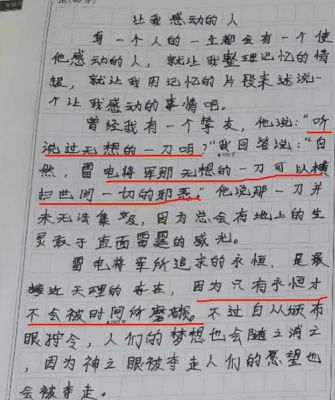 让我感动的人
每一个人的一生都会有一个使
他感动的人，就让我整理记忆的情
超，就让我用记忆的片段来述说一
个让我感动的事情吧。
曾经我有一个挚友，他说："听
说过无想的一刀吗？"我回答说："自
然，雷电将军那无想的一刀可以横
扫世间一切的邪恶。"他说那一刀并
未无法集，因为总会有地上的生
灵敢于直面雷霆的威光。
雷电将军所追求的永恒，是最
接近天理的，因为只有永恒才
不会被时间所磨损。不过自从颁布
眼狩令，人们的梦想也会随之消亡
，因为神之眼被夺走人们的愿望也
会被夺走。